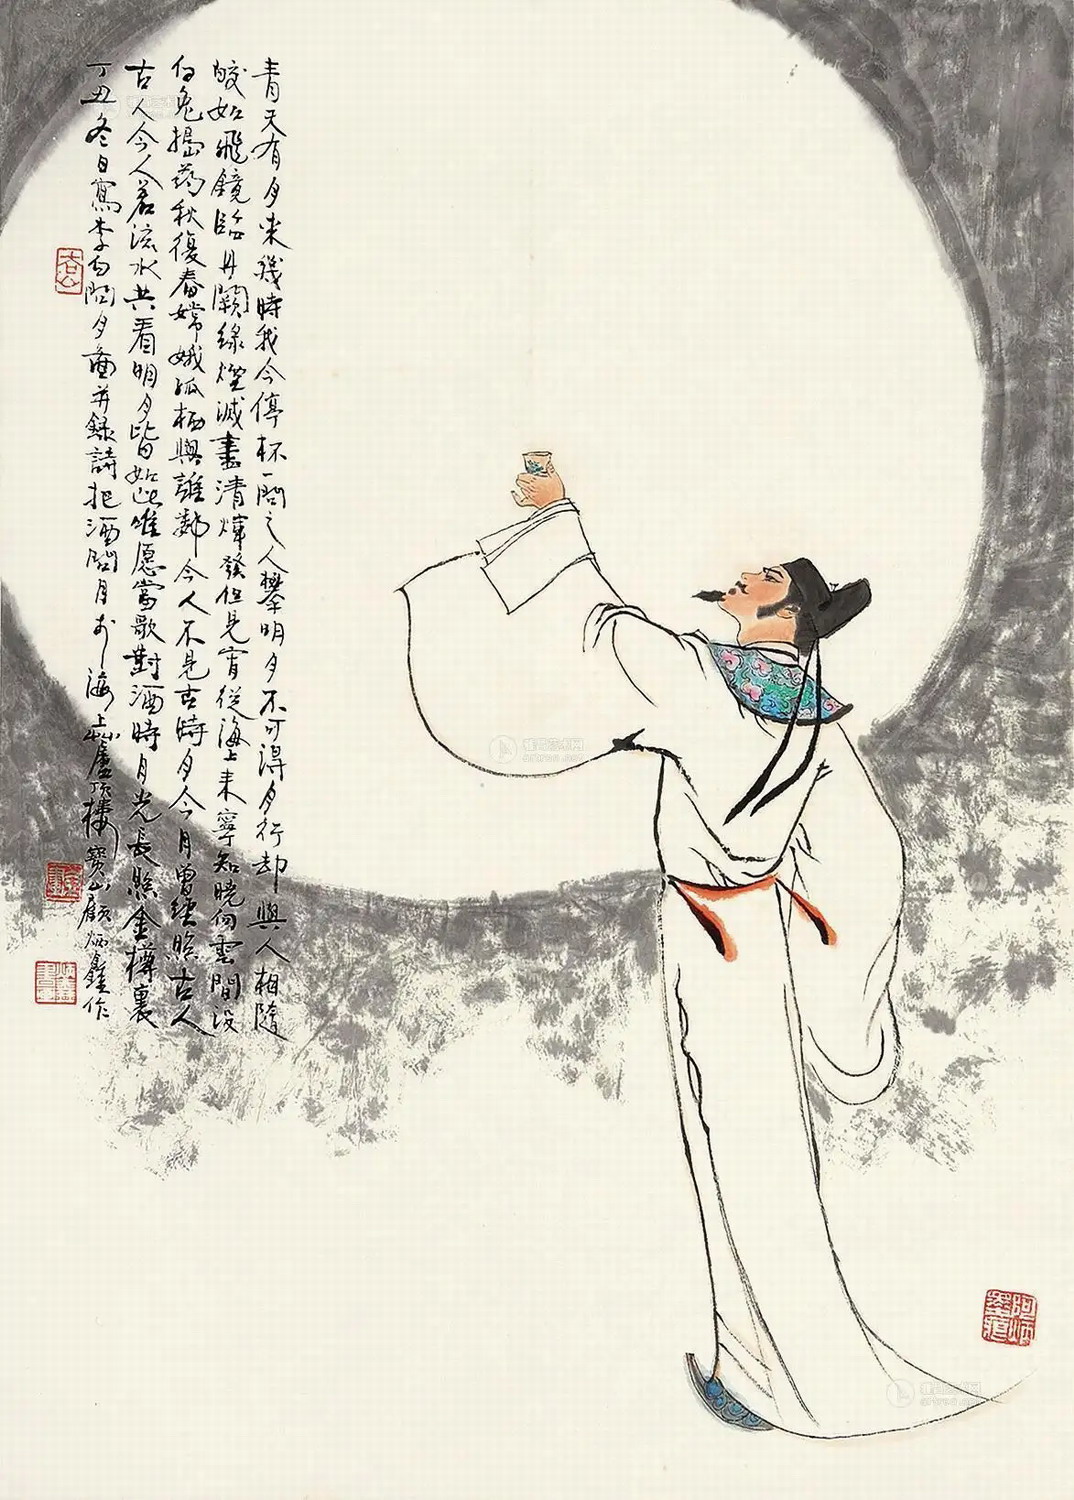 青天有月来幾時我今停杯一問之人攀明月不可得月行却與人相隨
皎如飛鏡臨丹闕綠煙滅盡清輝發但見宵從海上来寧知曉向雲間没
白兔搗药秋復春嫦娥孤栖與誰鄰今人不見古時月今月曾經照古人
古人今人若流水共看明月皆如此唯愿當歌對酒時月光長照金樽裏
丁丑冬日寫李白問月圖并錄詩把酒問月於海上廬頂樓寶山顧炳鑫作